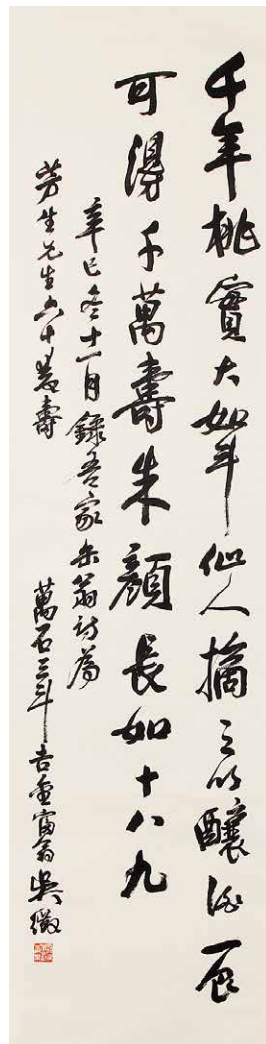 千年桃實大如斗仙人摘之以釀酒一食
可得千萬壽朱顏長如十八九
辛巳冬十一月錄吾家缶翁詩為
芳生先生六十壽
萬石三斗吉金富翁吳徵